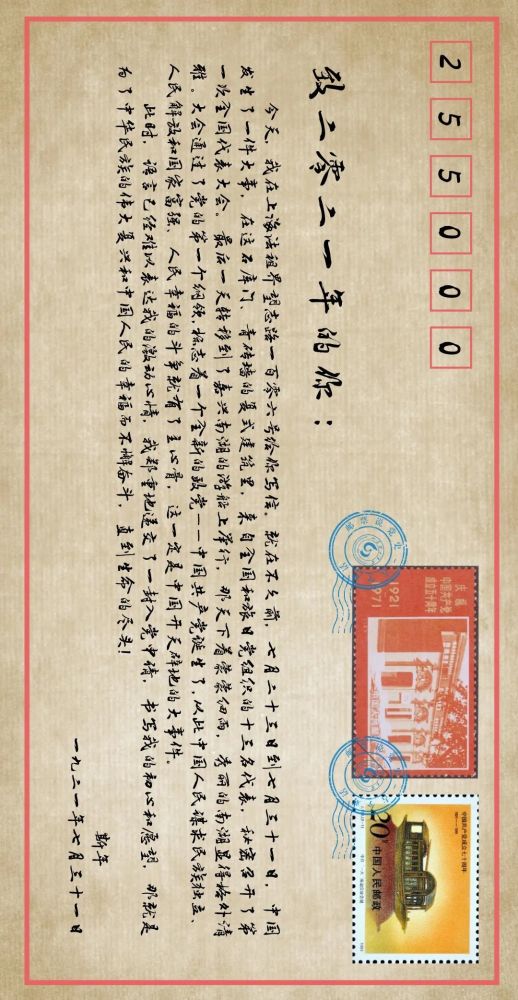 255000
致二零二一年的你：
今天，我在上海法租界望志路一百零六号给你写信。就在不久前，七月二十三日到七月三十一日，中国
发生了一件大事，在这石库门、青砖墙的复式建筑里，来自全国和旅日党组织的十三名代表，秘密召开了第
一次全国代表大会。最后一天转移到了嘉兴南湖的游船上举行，那天下着蒙蒙细雨，秀丽的南湖显得格外清
雅。大会通过了党的第一个纲领，标志着一个全新的政党——中国共产党诞生了，从此中国人民谋求民族独立、
人民解放和国家富强、人民幸福的斗争就有了主心骨，这一定是中国开天辟地的大事件。
此时，语言已经难以表达我的激动心情，我郑重地递交了一封入党申请，书写我的初心和愿望，那就是
为了中华民族的伟大复兴和中国人民的幸福而不懈奋斗，直到生命的尽头！
斯年
一九二一年七月三十一日
庆祝
中国共产党
成立五十周年
1921
1971
中国共产党成立七十周年
20
中国人民邮政